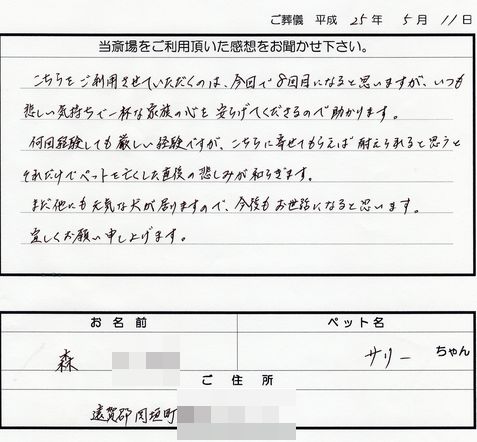 ご葬儀 平成 25年 5月 11日
当斎場をご利用頂いた感想をお聞かせ下さい。
こちらをご利用させていただくのは、今回で8回目になると思いますが、いつも
悲しい気持ちで一杯な家族の心を安らげてくださるので助かります。
何回経験しても厳しい経験ですが、こちらに寄せてもらえば耐えられると思うと
それだけでペットを亡くした直後の悲しみが和らぎます。
まだ他にも元気な犬が居りますので、今後もお世話になると思います。
宜しくお願い申し上げます。
お名前 ペット名
森 サリー ちゃん
ご住所
遠賀郡岡垣町